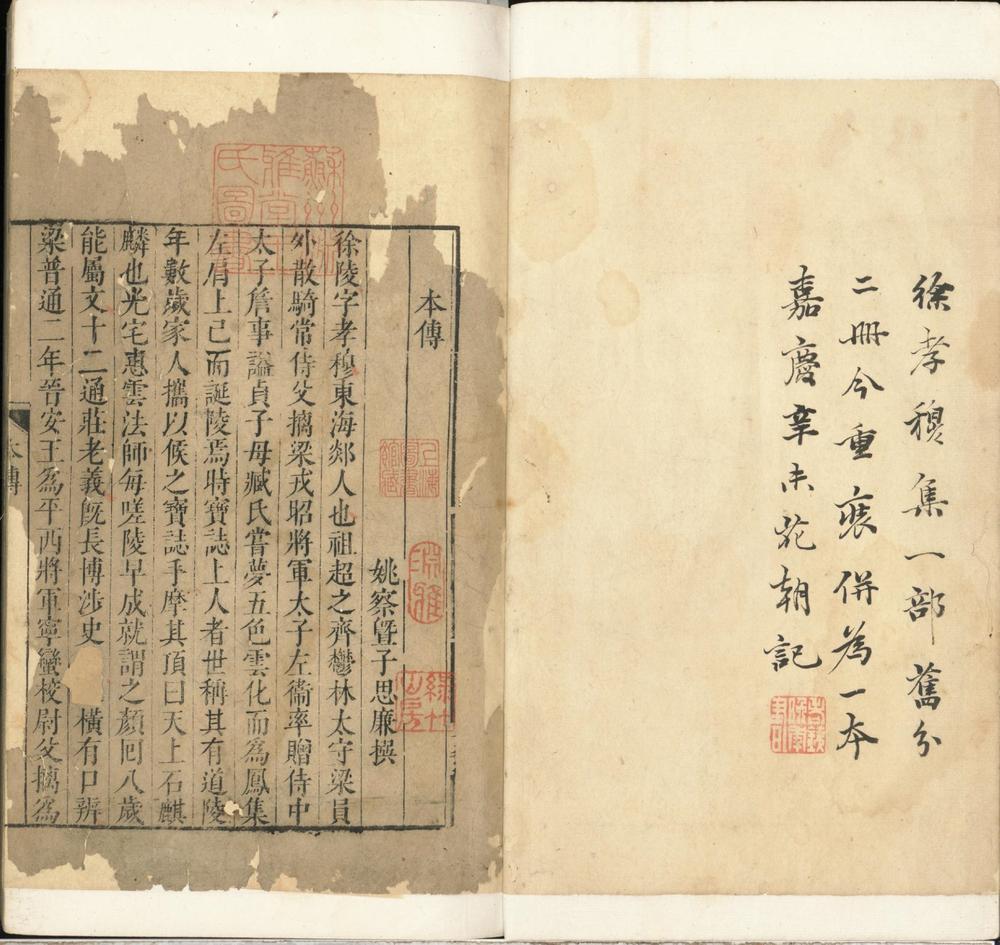 徐孝穆集一部舊分
二冊今重裝併為一本
嘉慶辛未花朝記
本傳
姚察曁子思廉撰
徐陵字孝穆東海郯人也祖超之齊鬱林太守梁員
外散騎常侍父摛梁戎昭將軍太子左衞率贈侍中
太子詹事謚貞子母臧氏嘗夢五色雲化而爲鳳集
左肩上已而誕陵焉時寶誌上人者世稱其有道陵
年數歲家人攜以候之寶誌手摩其頂曰天上石麒
麟也光宅惠雲法師每嗟陵早成就謂之顏囘八歲
能屬文十二通莊老義旣長博涉史 橫有口辨
梁普通二年晉安王爲平西將軍寧蠻校尉父摛爲
本傳